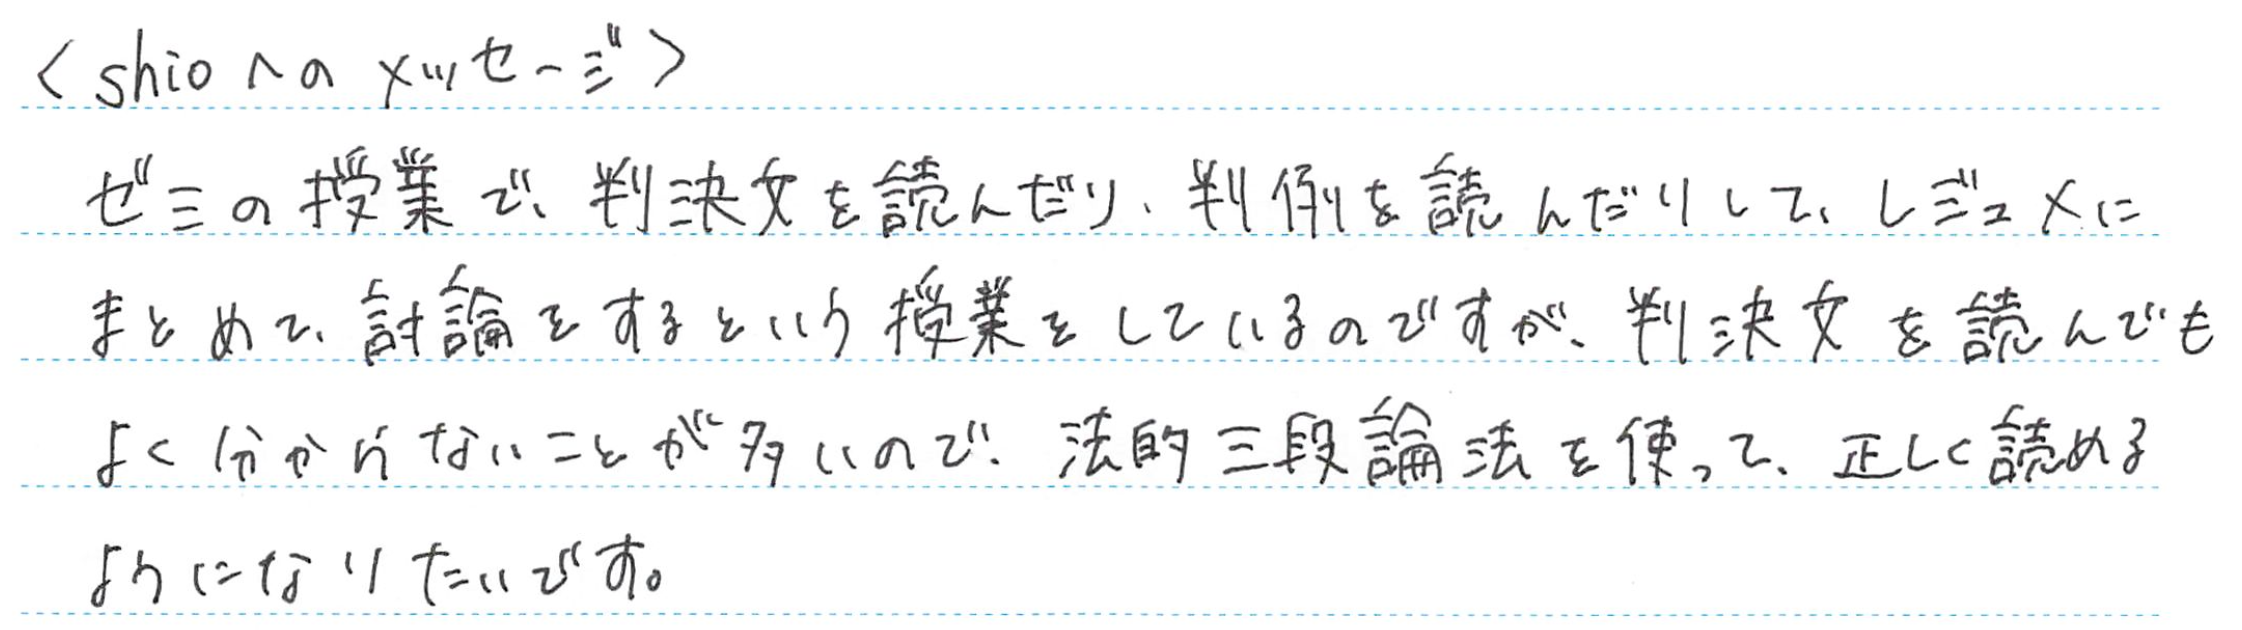 <shioへのメッセージ>
ゼミの授業で、判決文を読んだり、判例を読んだりして、レジュメに
まとめて、討論をするという授業をしているのですが、判決文を読んでも
よく分からないことが多いので、法的三段論法を使って、正しく読める
ようになりたいです。